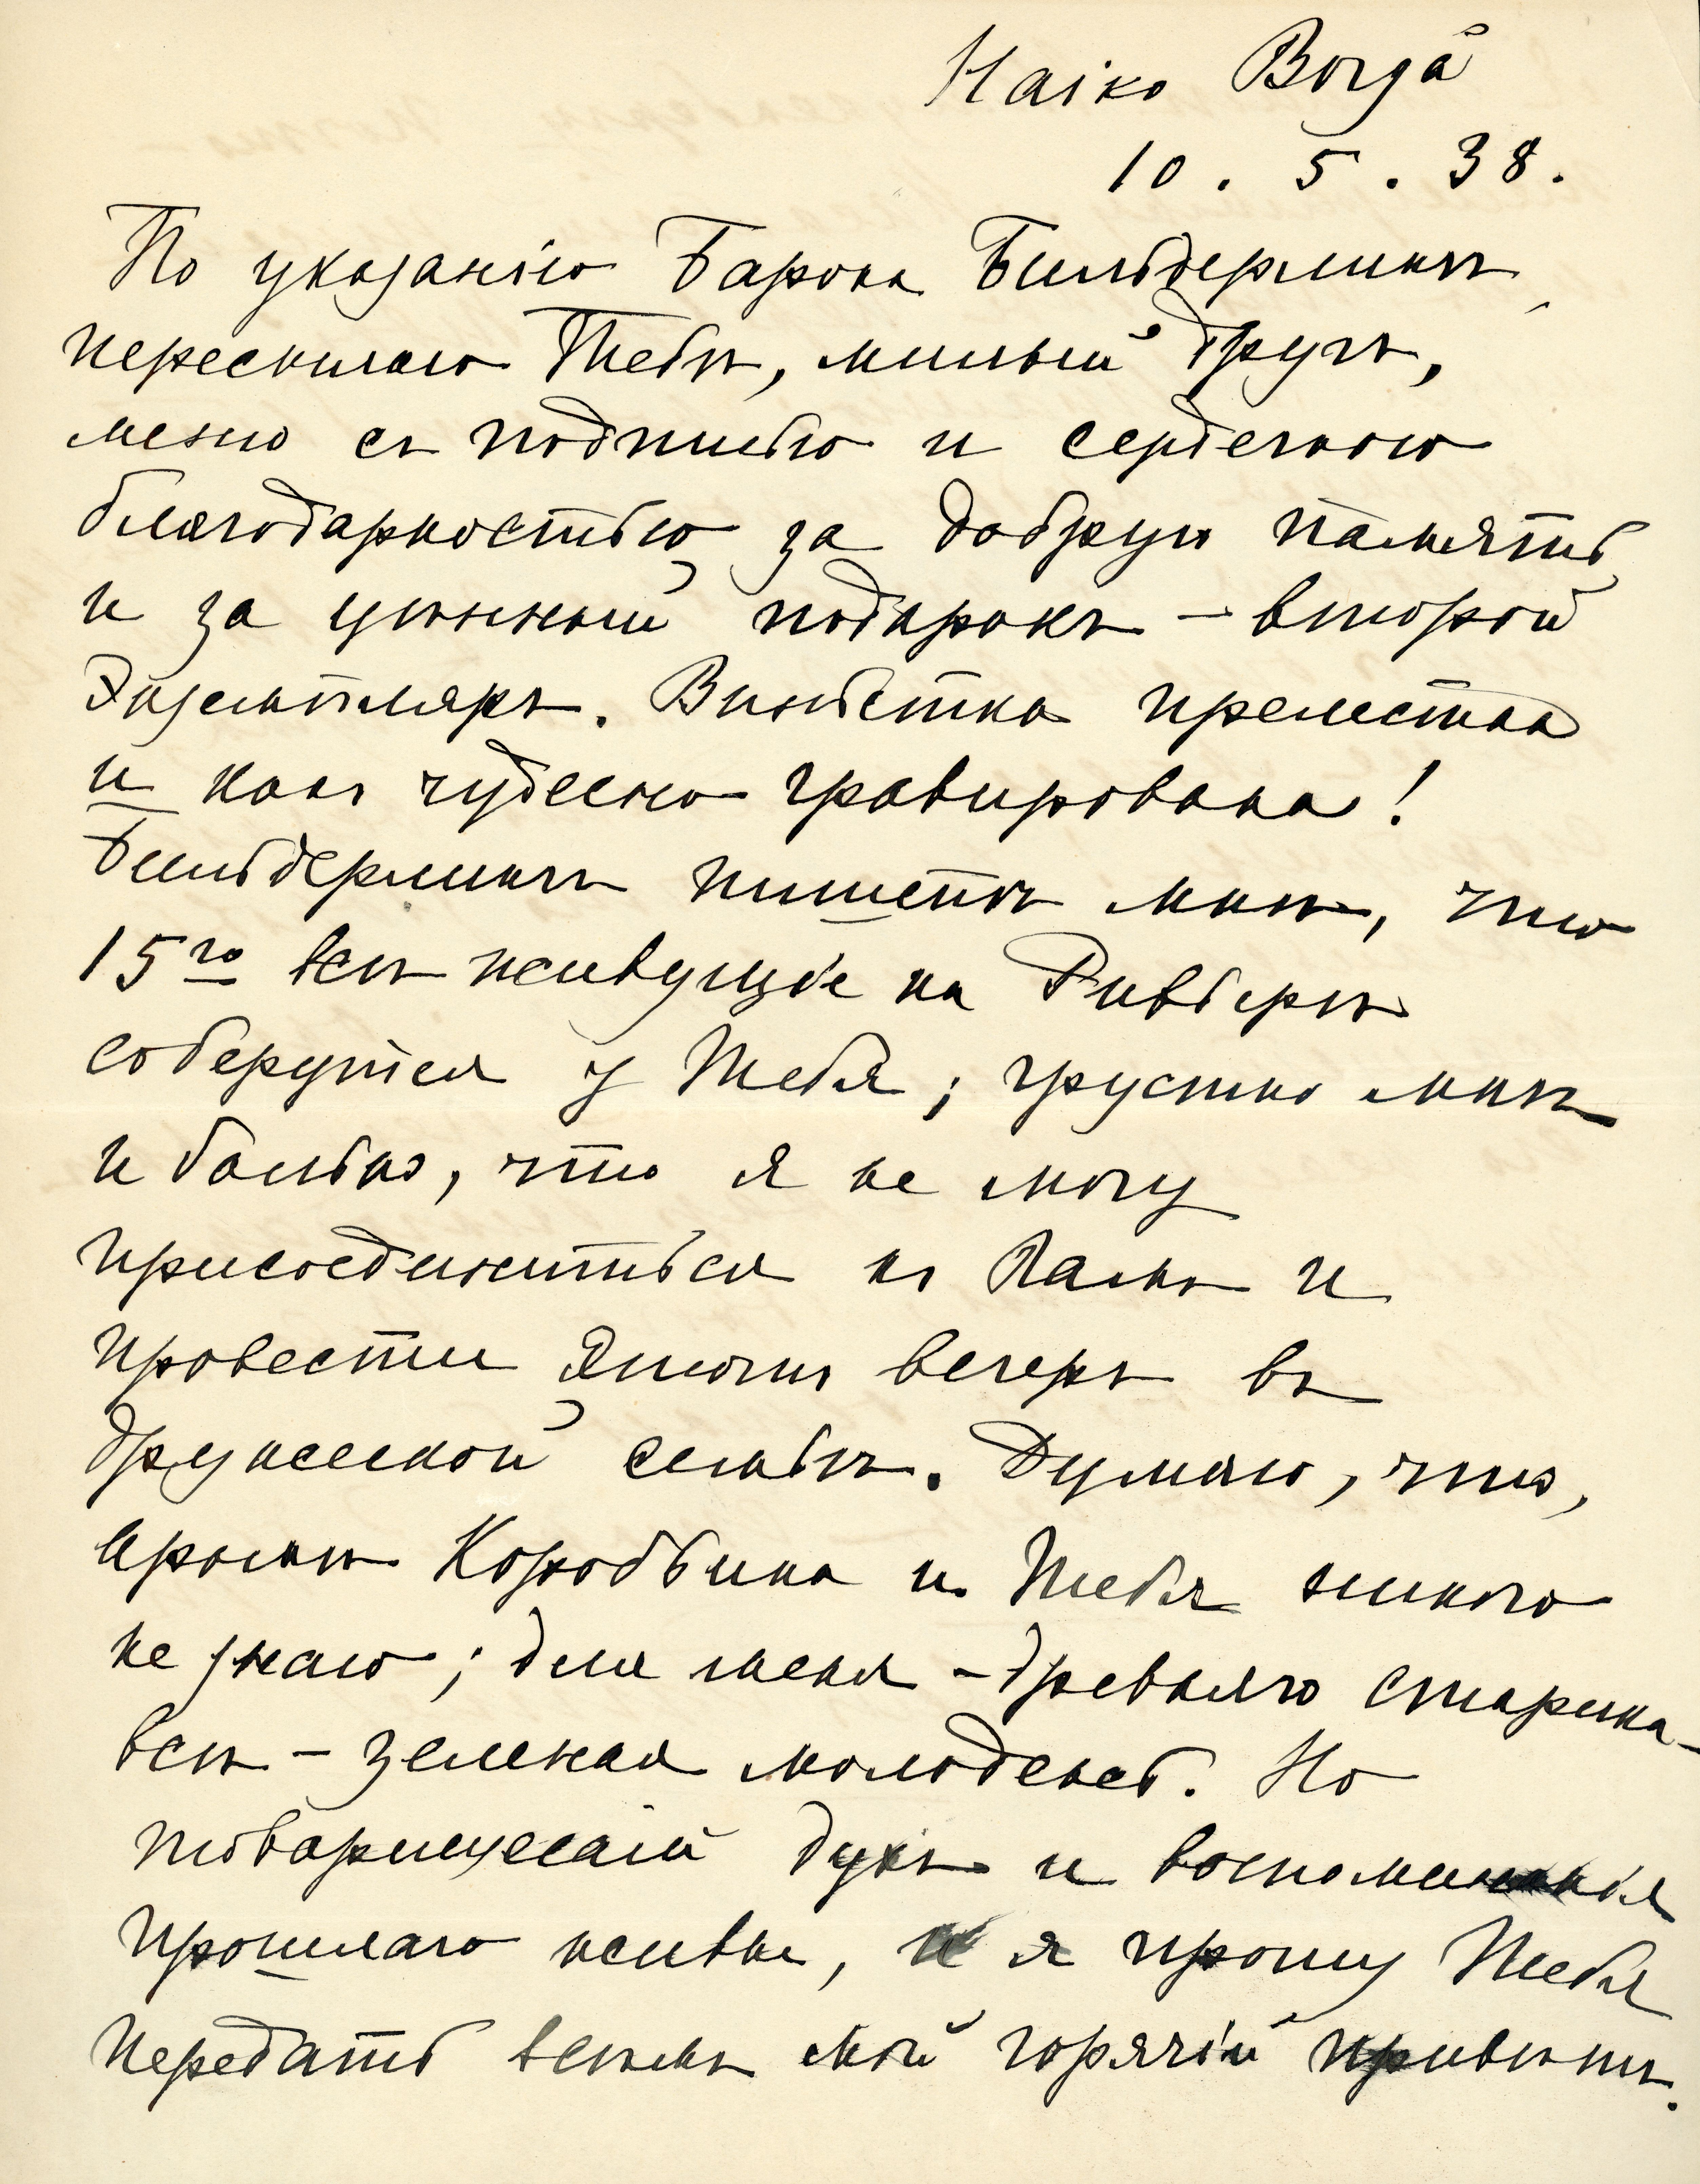 Haiko Borgå
10. 5. 38.
По указанію Барона Бильдерлинга
пересылаю Тебѣ, милый другъ,
меню съ подписью и сердечною
благодарностью за добрую память
и за цѣнный подарокъ – второй
экземпляръ. Виньетка прелестна
и какъ чудесно гравирована!
Бильдерлингъ пишетъ мнѣ, что
15го всѣ живущіе на Ривьерѣ
соберутся у Тебя; грустно мнѣ
и больно, что я не могу
присоединиться къ Вамъ и
провести этотъ вечеръ въ
дружеской семьѣ. Думаю, что,
кромѣ Коробьина и Тебя никого
не знаю; для меня – древняго старика –
всѣ – зеленая молодежь. Но
товарищескій духъ и воспоминанія
прошлаго живы, и я прошу Тебя
передать всѣмъ мой горячій привѣтъ.